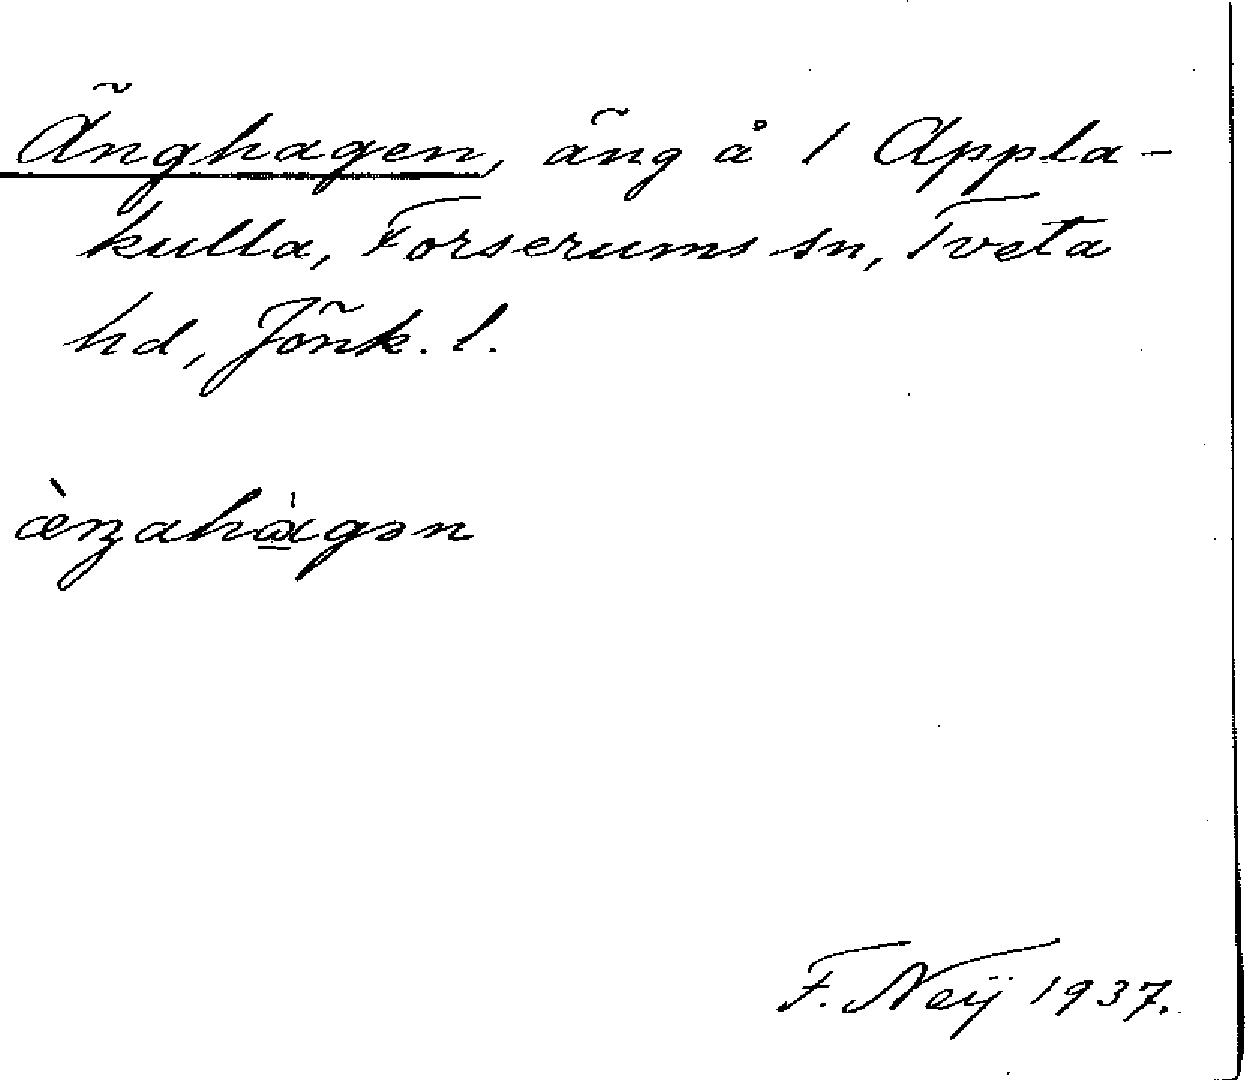 Änghagen, äng å 1 Appla-
kulla, Forserums sn, Tveta
hd, Jönk. l.
æ̀ŋahàgən
F. Neij 1937.